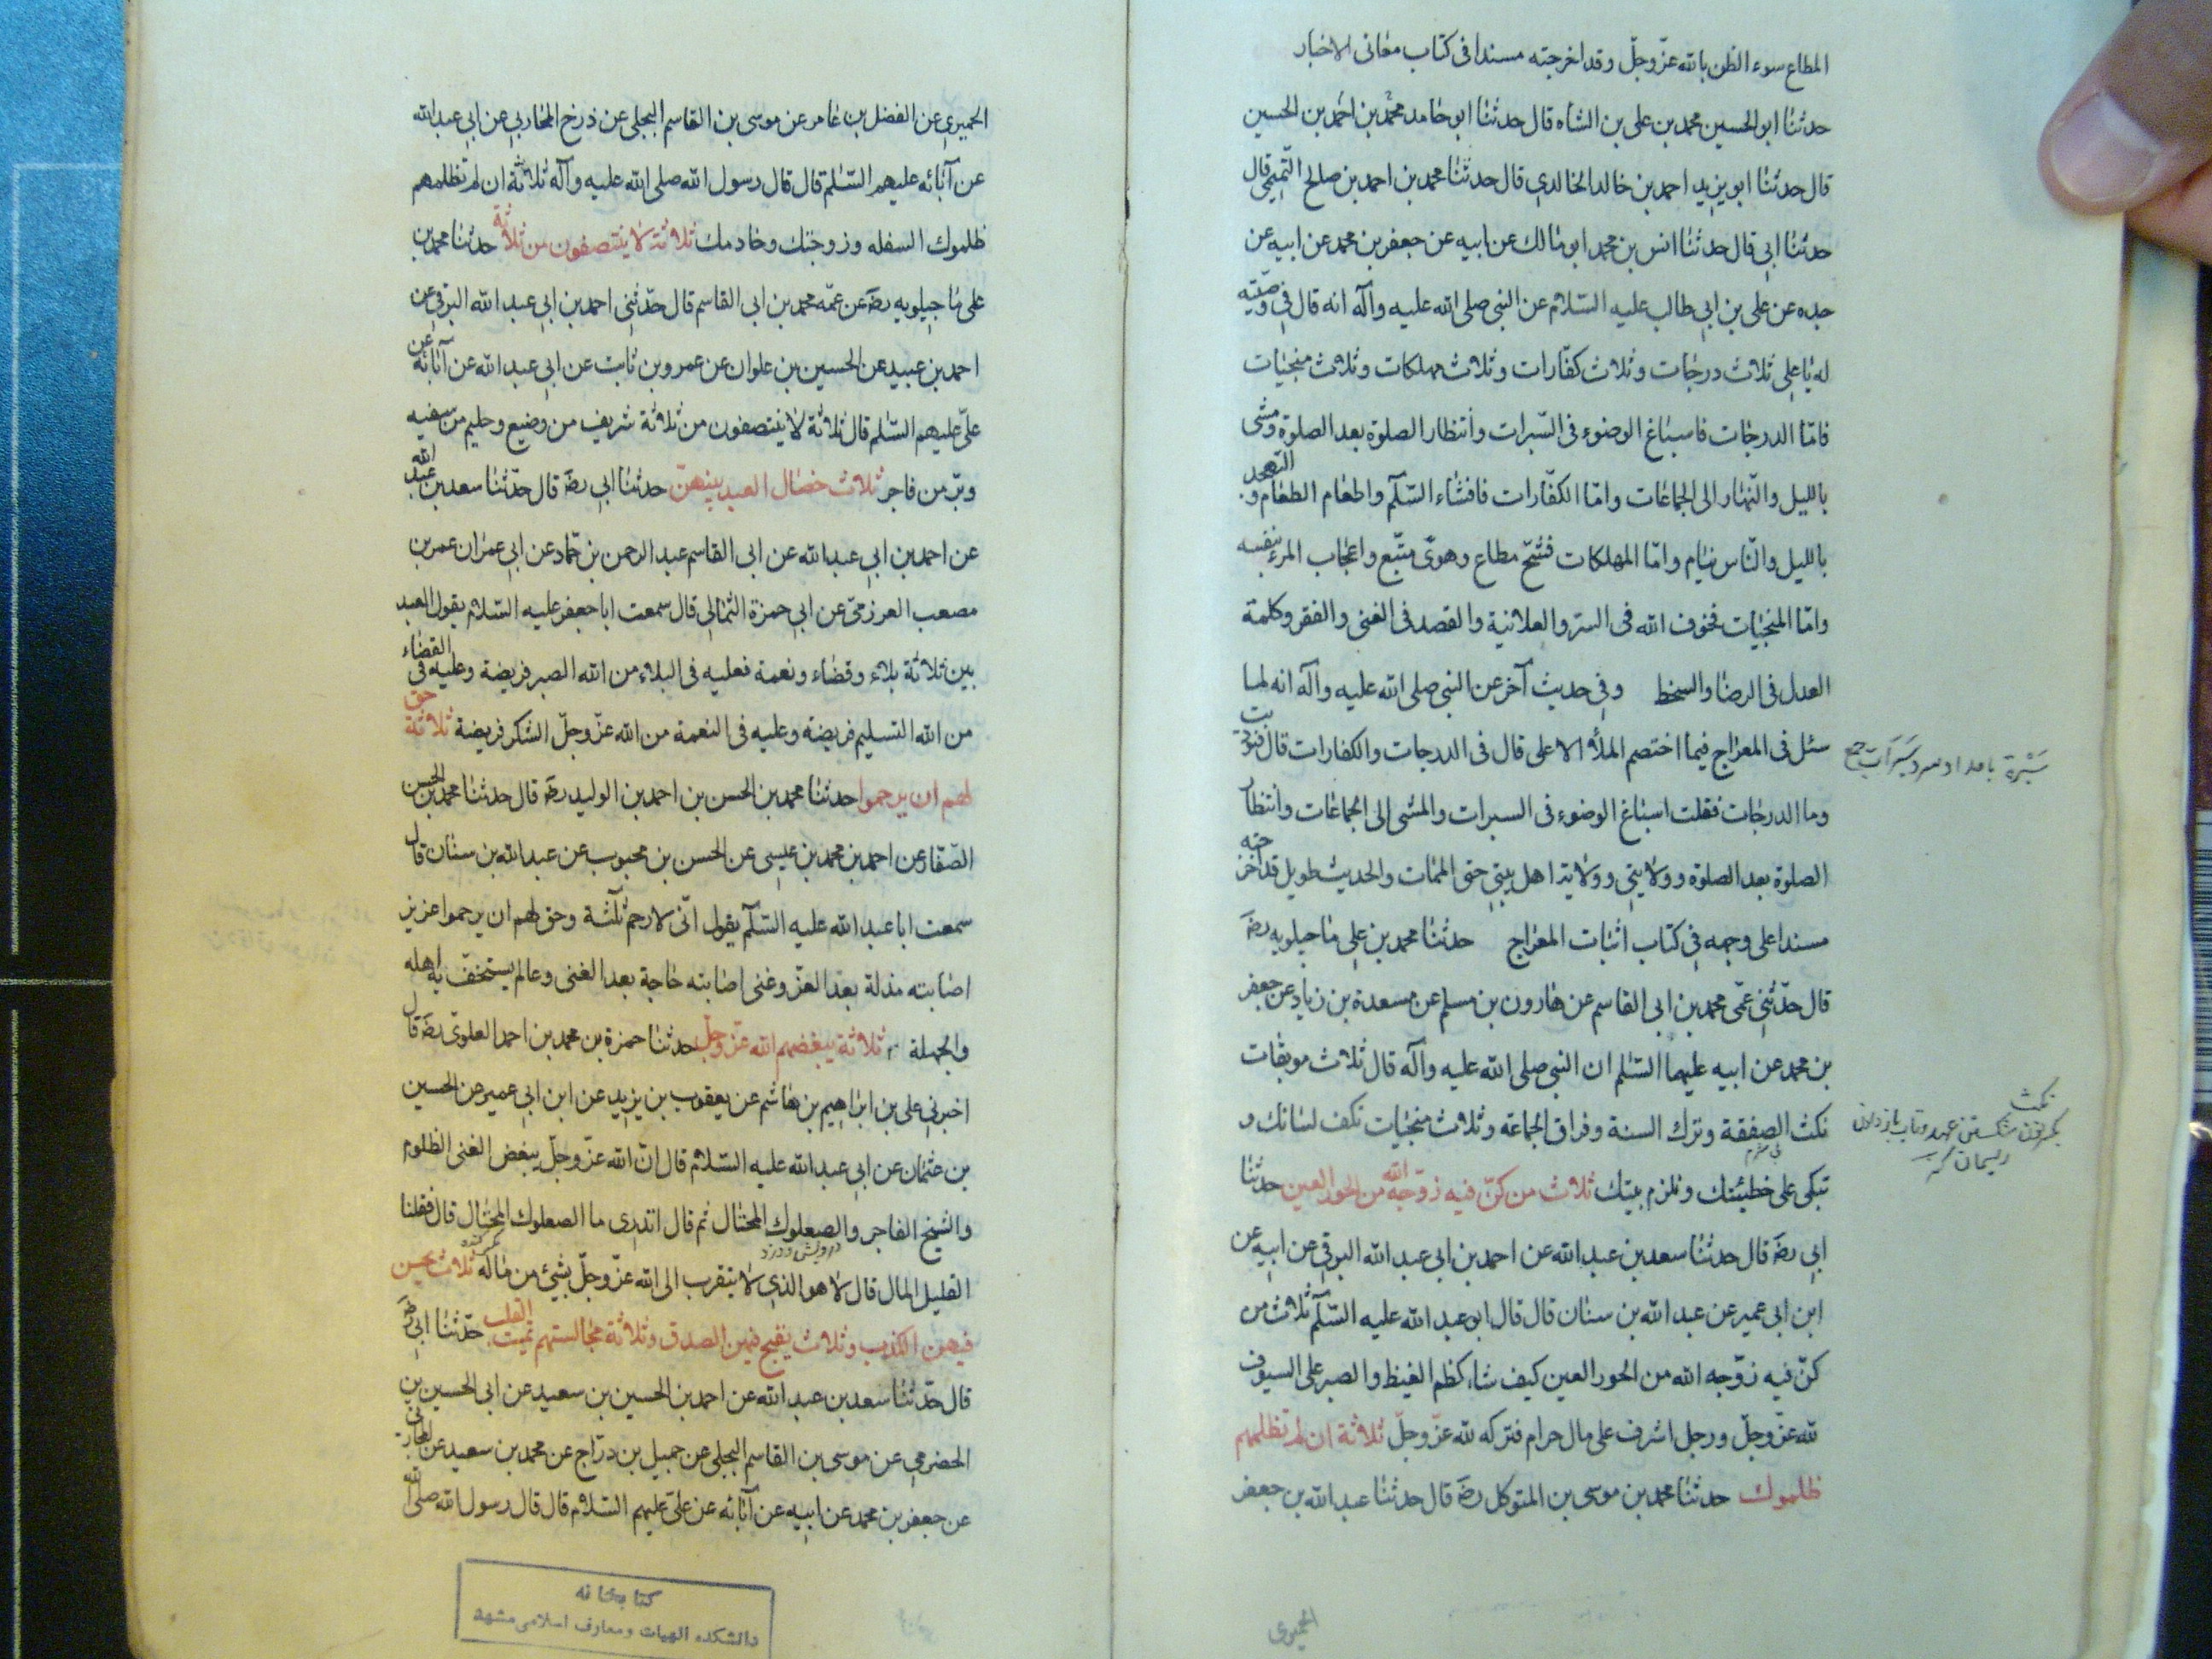 المطاع سوء الظن بالله عزّ وجلّ وقد اخرجته مسندا فى كتاب معانى الاخبار
حدثنا ابو الحسين محمد بن على بن الشاه قال حدثنا ابو حامد محمد بن احمد بن الحسين
قال حدثنا ابو يزيد احمد بن خالد الخالدي قال حدثنا محمد بن احمد بن صالح التّميمى قال
حدثنا ابي قال حدثنا انس بن محمد ابو مالك عن ابيه عن جعفر بن محمد عن ابيه عن
جده عن على بن ابي طالب عليه السّلام عن النبى صلى الله عليه وآله انه قال فى وصيّته
له يا على ثلاث درجات وثلاث كفّارات وثلاث مهلكات وثلاث منجيات
فامّا الدرجات فاسباغ الوضوء فى السّبرات وانتظار الصلوة بعد الصلوة ومشى
بالليل والنّهار الى الجماعات وامّا الكفّارات فافشاء السّلم واطعام الطعام و التهجد
بالليل والنّاس نيام وامّا المهلكات فشحّ مطاع وهوىً متّبع واعجاب المرء بنفسه
وامّا المنجيات فخوف الله فى السرّ والعلانية والقصد فى الغنى والفقر وكلمة
العدل فى الرضا والسخط وفى حديث آخر عن النبى صلى الله عليه وآله انه لما
سئل فى المعراج فيما اختصم الملأ الاعلى قال فى الدرجات والكفارات قال فنوديت
سَبْرة بامداد سرد سَبَرَات جمع
وما الدرجات فقلت اسباغ الوضوء فى السبرات والمشى الى الجماعات وانتظار
الصلوة بعد الصلوة وولايتى وولاية اهل بيتى حتى الممات والحديث طويل قد اخرجته
مسندا على وجهه فى كتاب اثبات المعراج حدثنا محمد بن على ماجيلويه رضه
قال حدّثنى عمّى محمد بن ابى القاسم عن هارون بن مسلم عن مسعدة بن زياد عن جعفر
بن محمد عن ابيه عليهما السّلم ان النبى صلى الله عليه وآله قال ثلاث موبقات
نكث الصفقة وترك السنة وفراق الجماعة وثلاث منجيات تكف لسانك و
نكث
شكستن عهد وتاب باز دادن
ريسمان
تبكى على خطيئتك وتلزم بيتك ثلاث من كنّ فيه زوّجه الله من الحور العين حدثنا
ابي رضه قال حدثنا سعد بن عبد الله عن احمد بن ابى عبد الله البرقى عن ابيه عن
ابن ابى عمير عن عبد الله بن سنان قال قال ابو عبد الله عليه السّلم ثلاث من
كنّ فيه زوّجه الله من الحور العين كيف شاء كظم الغيظ والصبر على السيوف
لله عزّ وجلّ ورجل اشرف على مال حرام فتركه لله عزّ وجلّ ثلاثة ان لم تظلمهم
ظلموك حدثنا محمد بن موسى بن المتوكل رضه قال حدثنا عبد الله بن جعفر
الحميرى
الحميري عن الفضل بن عامر عن موسى بن القاسم البجلى عن ذريح المحاربي عن ابي عبد الله
عن آبائه عليهم السّلم قال قال رسول الله صلى الله عليه وآله ثلاثة ان لم تظلمهم
ظلموك السفله وزوجتك وخادمك ثلاثة لا ينتصفون من ثلاثة حدثنا محمد بن
على ماجيلويه رضه عن عمّه محمد بن ابى القاسم قال حدّثنى احمد بن ابى عبد الله البرقى عن
احمد بن عبيد عن الحسين بن علوان عن عمرو بن ثابت عن ابى عبد الله عن آبائه عن
علىّ عليهم السّلم قال ثلاثة لا ينتصفون من ثلاثة شريف من وضيع وحليم من سفيه
وبرّ من فاجر ثلاث خصال العبد بينهنّ حدثنا ابى رضه قال حدّثنا سعد بن عبد الله
عن احمد بن ابى عبد الله عن ابى القاسم عبد الرحمن بن حمّاد عن ابى عمران عمر بن
مصعب العرزمىّ عن ابى حمزة الثمالى قال سمعت ابا جعفر عليه السّلام يقول العبد
بين ثلاثة بلاء وقضاء ونعمة فعليه فى البلاء من الله الصبر فريضة وعليه فى القضاء
من الله التسليم فريضة وعليه فى النعمة من الله عزّ وجلّ الشكر فريضة ثلاثة حق
لهم ان يرحموا حدثنا محمد بن الحسن بن احمد بن الوليد رضه قال حدثنا محمد بن الحسن
الصّفار عن احمد بن محمد بن عيسى عن الحسن بن محبوب عن عبد الله بن سنان قال
سمعت ابا عبد الله عليه السّلم يقول انّى لارحم ثلثة وحق لهم ان يرحموا عزيز
اصابته مذلة بعد العزّ وغنى اصابته حاجة بعد الغنى وعالم يستخفّ به اهله
والجهلة ثلاثة يبغضهم الله عزّ وجلّ حدثنا حمزة بن محمد بن احمد العلوىّ رضه قال
اخبرنى على بن ابراهيم بن هاشم عن يعقوب بن يزيد عن ابن ابى عمير عن الحسين
بن عثمان عن ابى عبد الله عليه السّلام قال انّ الله عزّ وجلّ يبغض الغنى الظلوم
والشيخ الفاجر والصعلوك المختال ثم قال اتدرى ما الصعلوك المختال قال فقلنا
القليل المال قال لا هو الذى لا يتقرب الى الله عزّ وجلّ بشئ من ماله ثلاث يحسن
فيهن الكذب وثلاث يقبح فيهن الصدق وثلاثة مجالستهم تميت القلب حدّثنا ابى رضه
قال حدّثنا سعد بن عبد الله عن احمد بن الحسين بن سعيد عن ابى الحسين بن
الحضرمي عن موسى بن القاسم البجلى عن جميل بن درّاج عن محمد بن سعيد عن المحاربى
عن جعفر بن محمد عن ابيه عن آبائه عن علىّ عليهم السّلام قال قال رسول الله صلى الله
كتابخانه
دانشكده الهيات ومعارف اسلامى مشهد